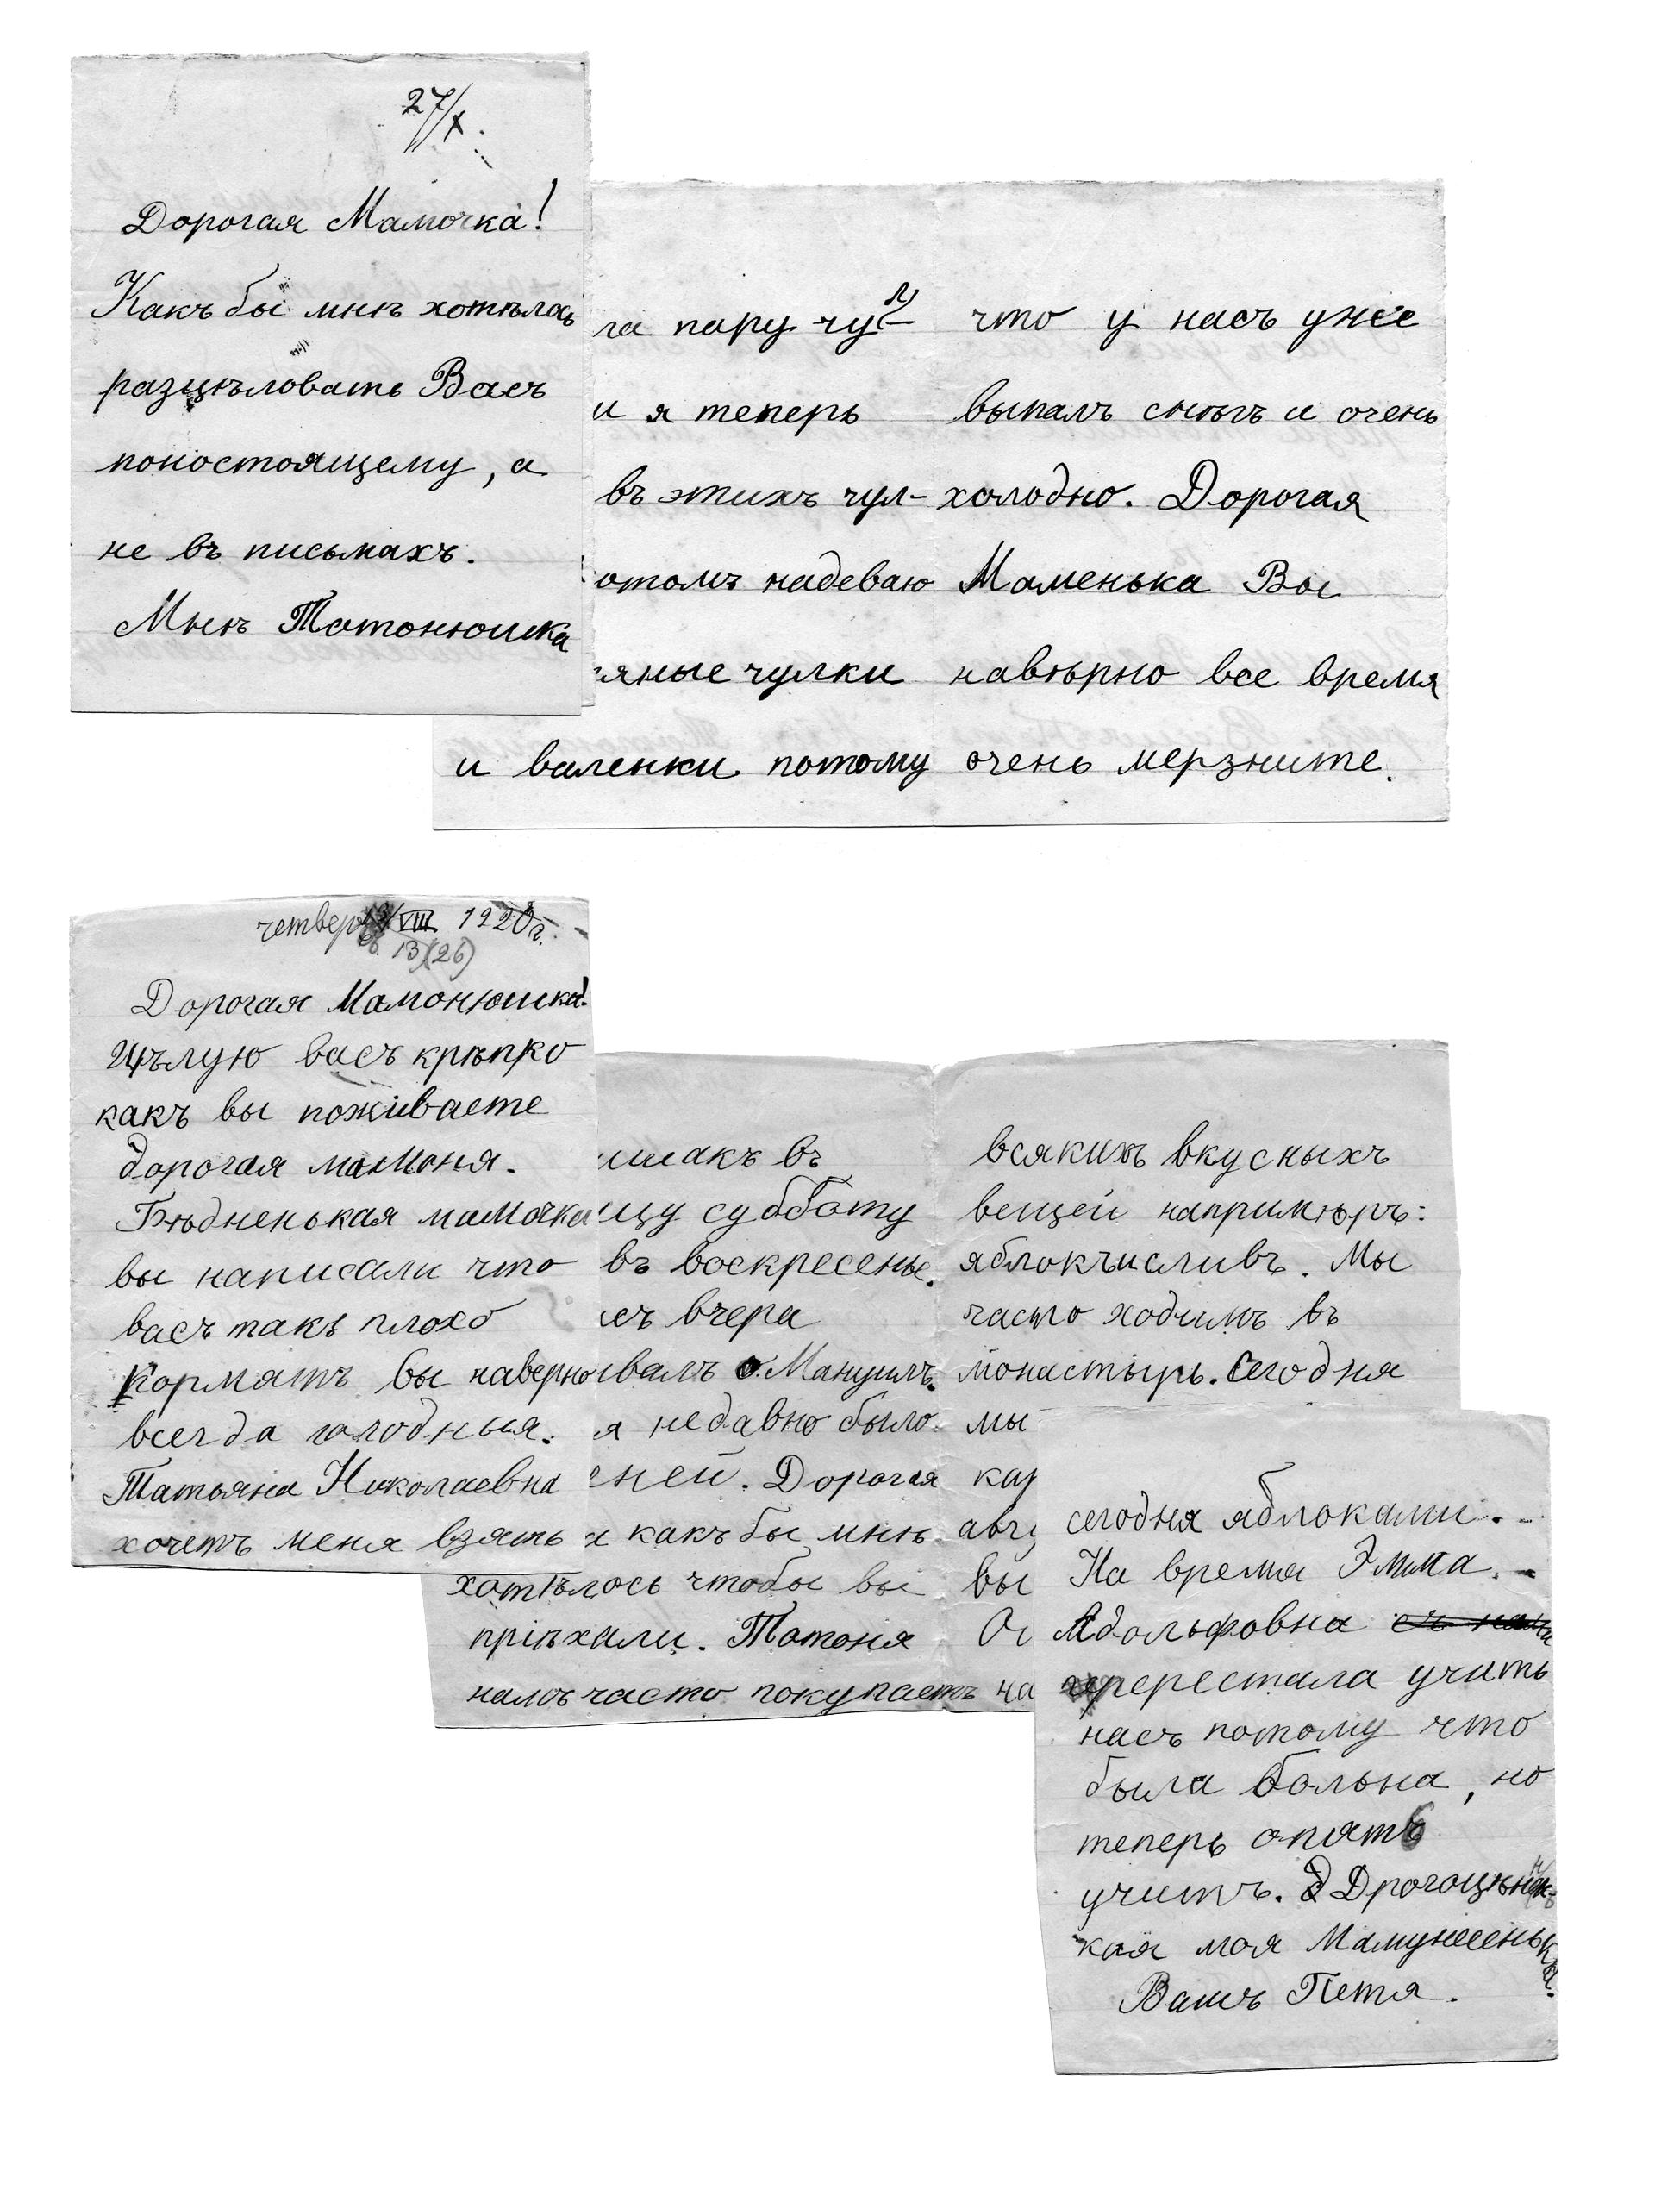 27/X.
Дорогая Мамочка!
Какъ бы мнѣ хотѣлось
разцѣловать Васъ
понастоящему, а
не въ письмахъ.
Мнѣ Татонюшка
па пару чул-
и я теперь
въ этихъ чул-
отомъ надеваю
яные чулки
и валенки потому
что у насъ уже
выпалъ снѣгъ и очень
холодно. Дорогая
Маменька Вы
навѣрно все время
очень мерзните.
четверг VIII 1920 г.
13 (26)
Дорогая Мамонюшка!
Цѣлую васъ крѣпко
какъ вы поживаете
дорогая мамоня.
Бѣдненькая мамочка
вы написали что
васъ такъ плохо
кормятъ вы наверно
всегда голодныя.
Татьяна Николаевна
хочетъ меня взять
ишакъ въ
ицу субботу
въ воскресенье.
съ вчера
ывалъ о. Мануилъ.
я недавно было
еней. Дорогая
и какъ бы мнѣ
хотѣлось чтобы вы
пріѣхали. Татоня
намъ часто покупаетъ
всякихъ вкусныхъ
вещей напримѣръ:
яблокъ и сливъ. Мы
часто ходимъ въ
монастырь. Сегодня
мы
кар
авгу
вы
на
сегодня яблоками.
На время Эмма
Адольфовна съ нами
перестала учить
насъ потому что
была больна, но
теперь опять
учитъ. Д Дрогоцѣнень-
кая моя Мамунеенька.
Вашъ Петя.